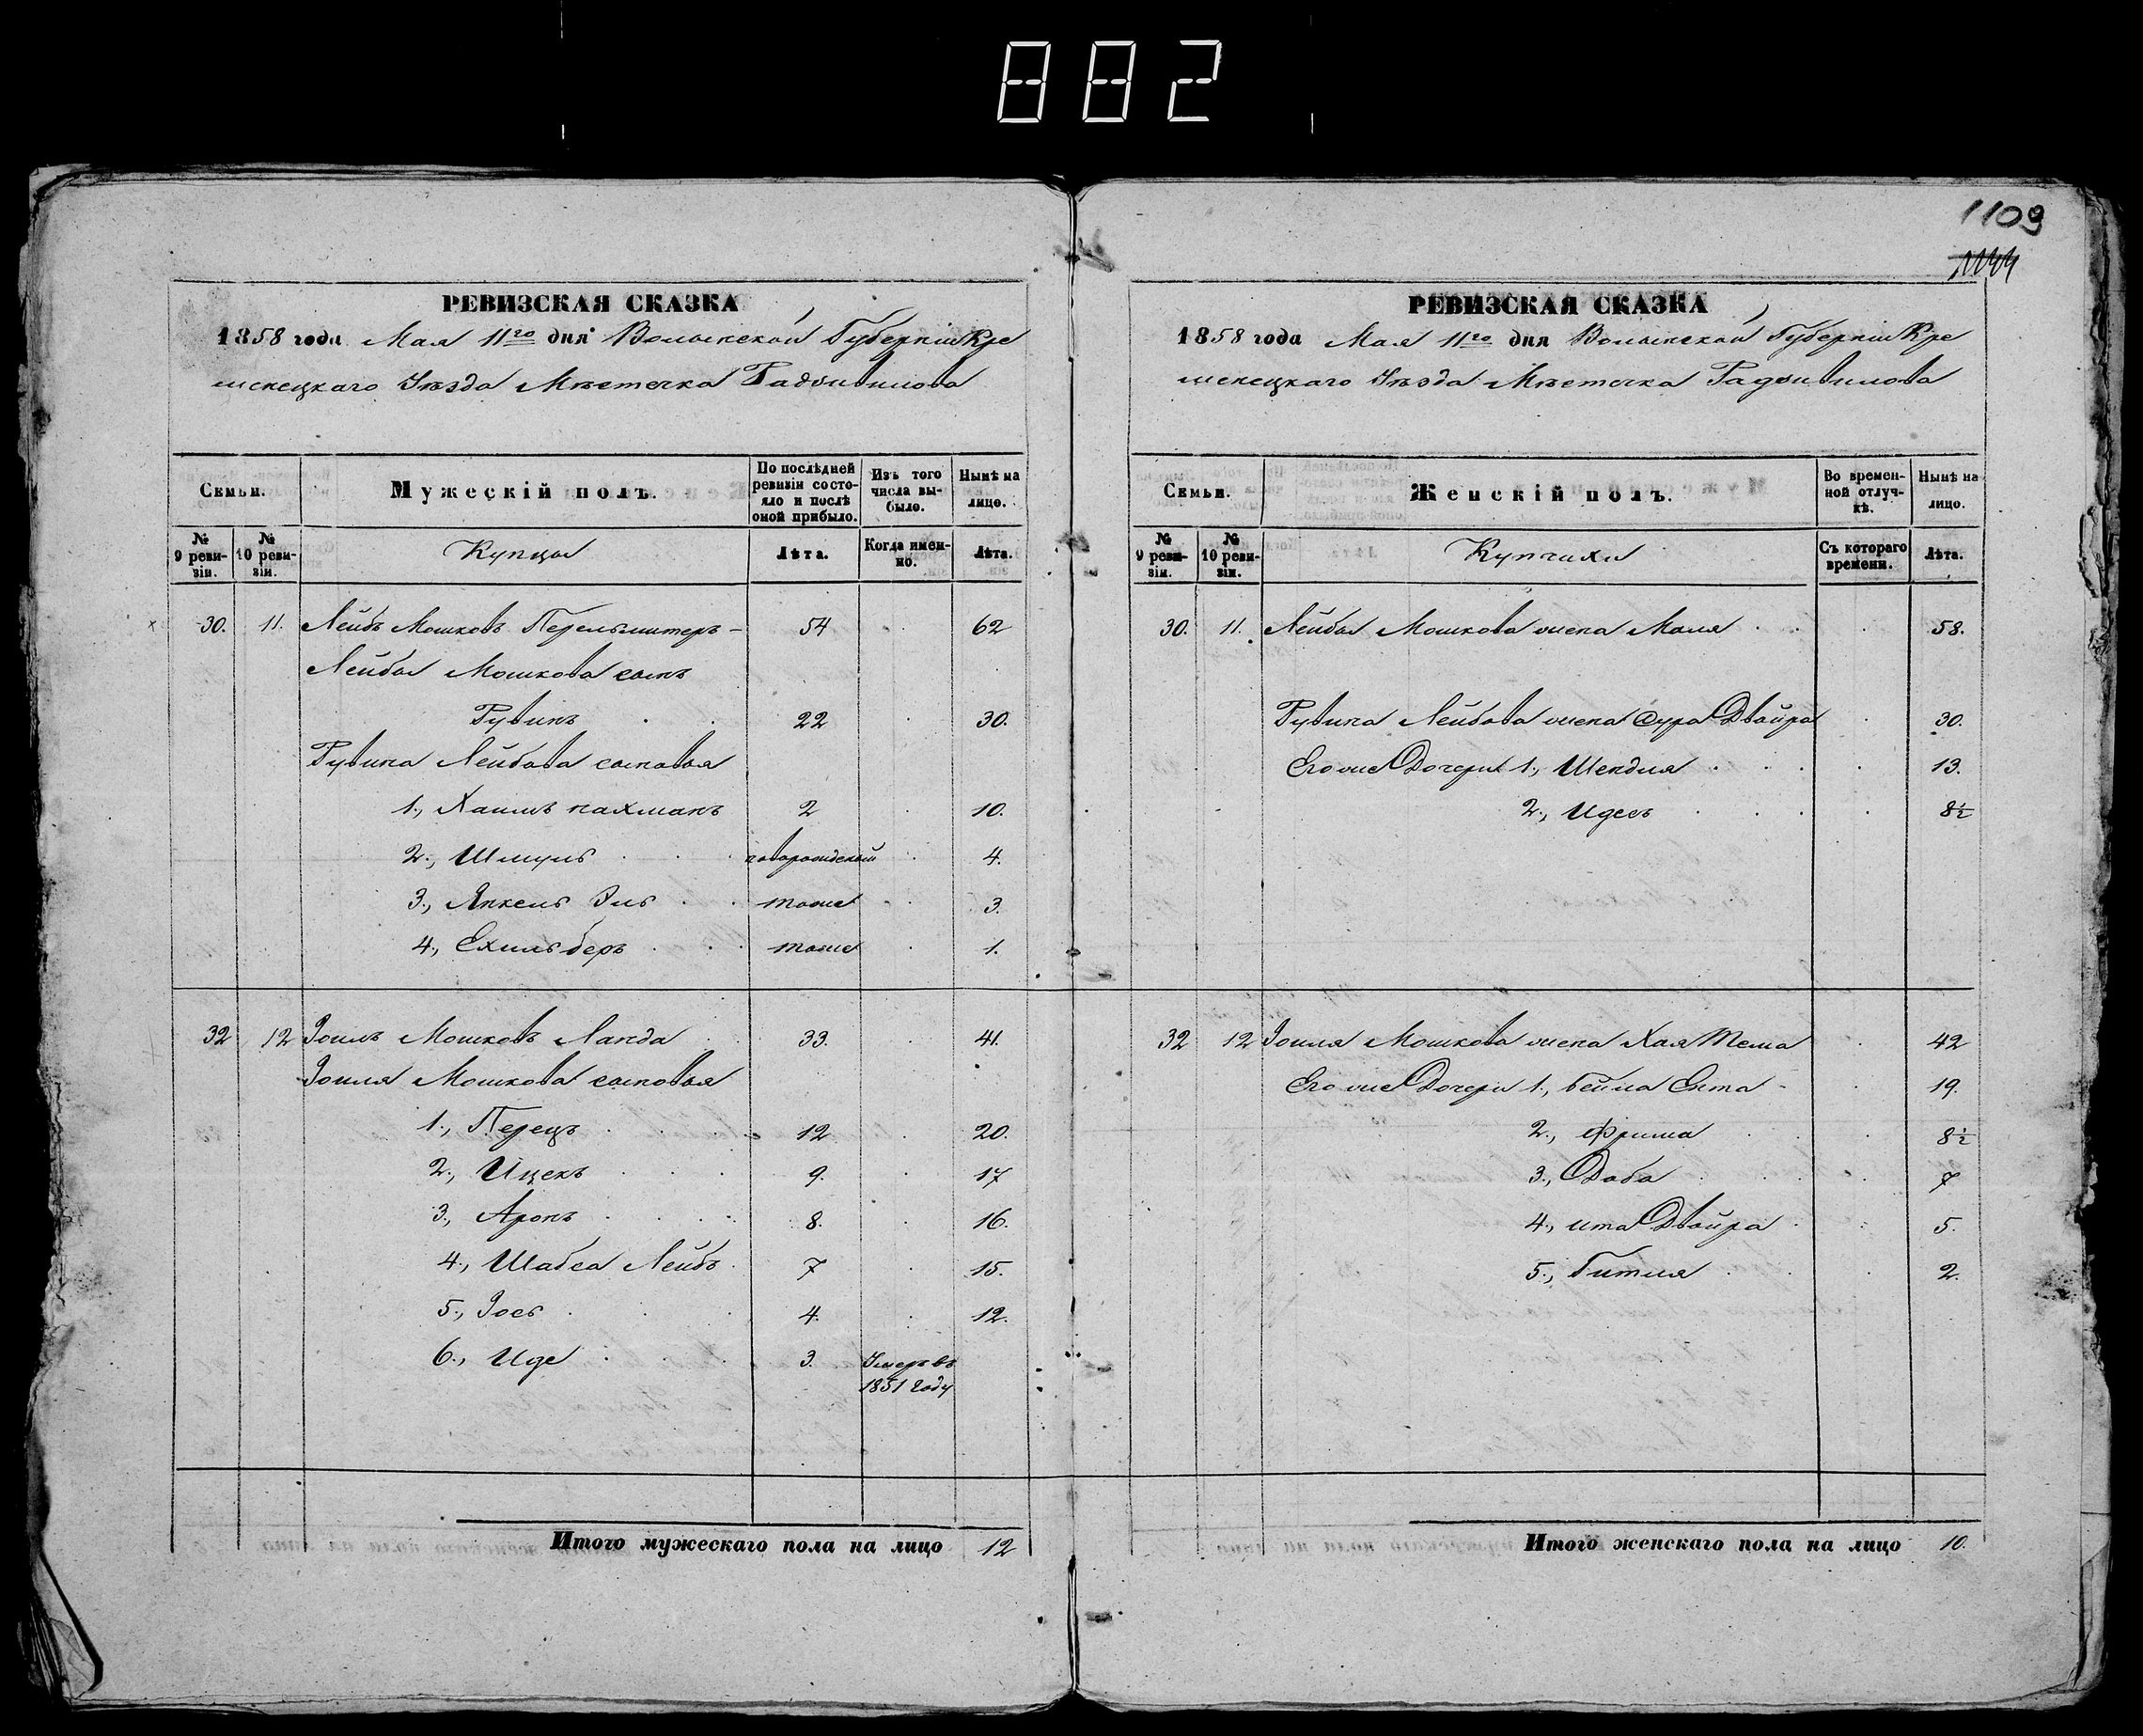 882
1109
РЕВИЗСКАЯ СКАЗКА
1858 года Мая 11го дня Волынской Губерніи Кре
менецкаго Уѣзда Мѣстечка Радзивилова
Семьи.
Мужескій полъ.
По послѣдней ревизіи состояло и послѣ оной прибыло.
Изъ того числа выбыло.
Нынѣ на лицо.
№ 9 ревизіи.
№ 10 ревизіи.
Купцы
Лѣта.
Когда именно.
Лѣта.
30. 11. Лейбъ Мошковъ Перельмитеръ - 54 62
Лейбы Мошкова сынъ
Рувинъ 22 30.
Рувина Лейбова сыновья
1., Хаимъ нахманъ 2 10.
2., Шмуль новорожденый 4.
3., Янкель Эль тоже 3.
4., Ехиль беръ тоже 1.
32 12 Зоиль Мошковъ Ланда 33. 41.
Зоиля Мошкова сыновья
1., Перецъ 12 20.
2., Ицекъ 9. 17
3., Аронъ 8. 16.
4., Шабса Лейбъ 7 15.
5., Іось 4. 12.
6., Иде 3. Умеръ въ
1851 году
Итого мужескаго пола на лицо 12
РЕВИЗСКАЯ СКАЗКА
1858 года Мая 11го дня Волынской Губерніи Кре
менецкаго Уѣзда Мѣстечка Радзивилова
Семьи.
Женскій полъ.
Во временной отлучкѣ.
Нынѣ на лицо.
№ 9 ревизіи.
№ 10 ревизіи.
Купчихи
Съ котораго времени.
Лѣта.
30. 11. Лейбы Мошкова жена Маля 58.
Рувина Лейбова жена Сура Двойра 30.
Его же Дочери 1., Шендля 13.
2., Идесъ 8½
32 12 Зоиля Мошкова жена Хая Тема 42
Его же Дочери 1., бейла Ента 19.
2., Фрима 8½
3., Доба 7
4., ита Двойра 5.
5., Гитля 2.
Итого женскаго пола на лицо 10.